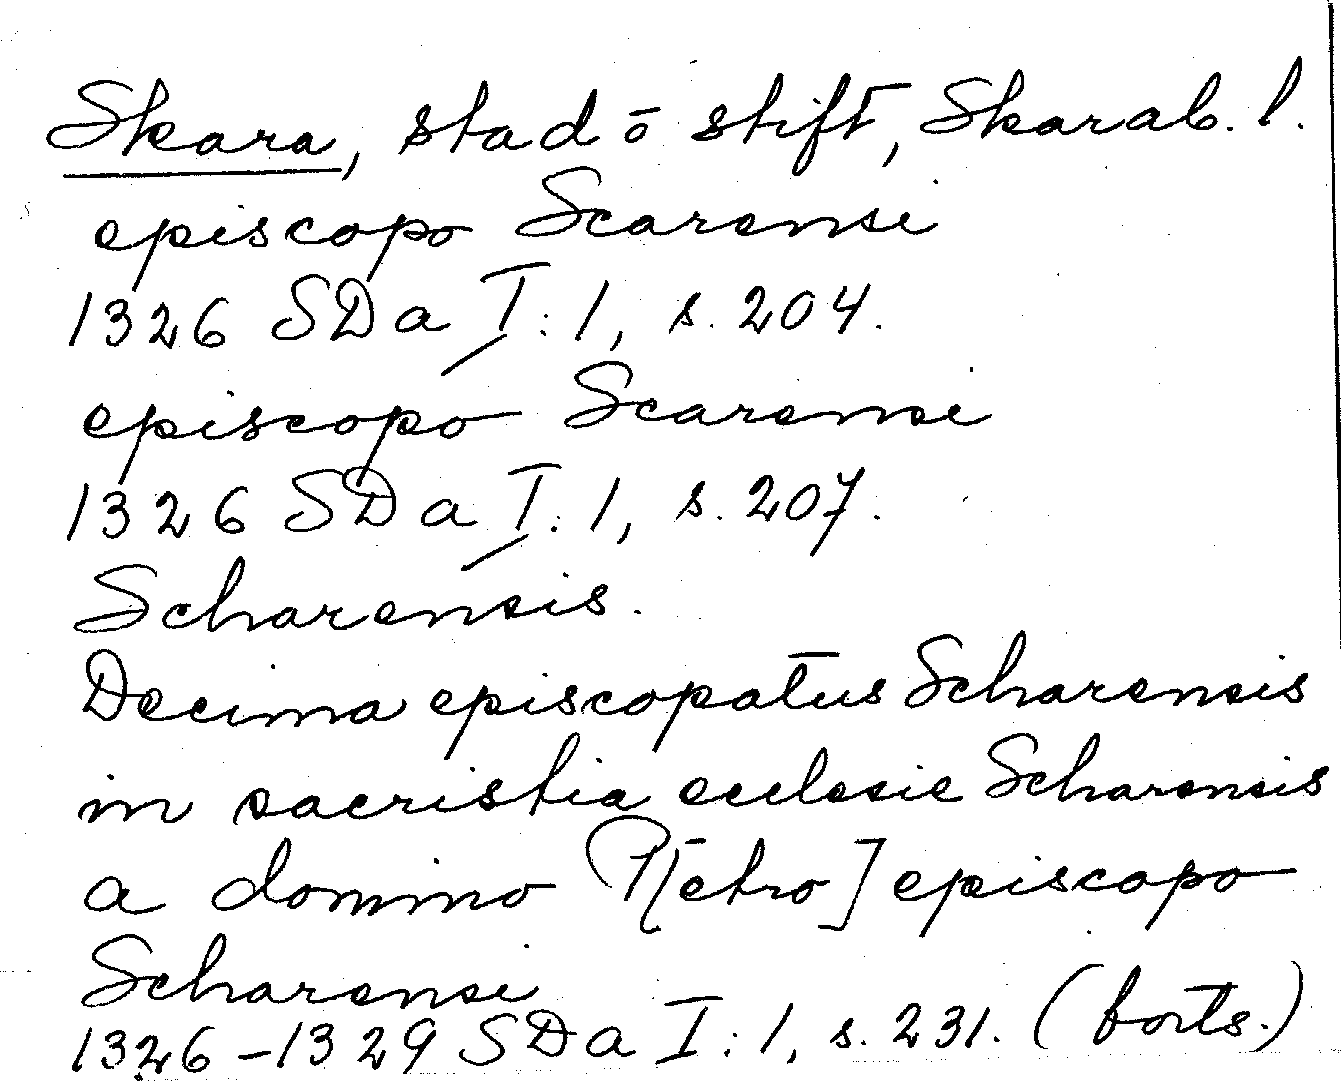 Skara, stad ō stift, Skarab. l.
episcopo Scarensi
1326 SDa I:1, s. 204.
episcopo Scarensi
1326 SDa I:1, s. 207.
Scharensis.
Decima episcopatus Scharensis
in sacristia ecclesie Scharensis
a domino P[etro] episcopo
Scharensi
1326-1329 SDa I:1, s. 231. (forts.)